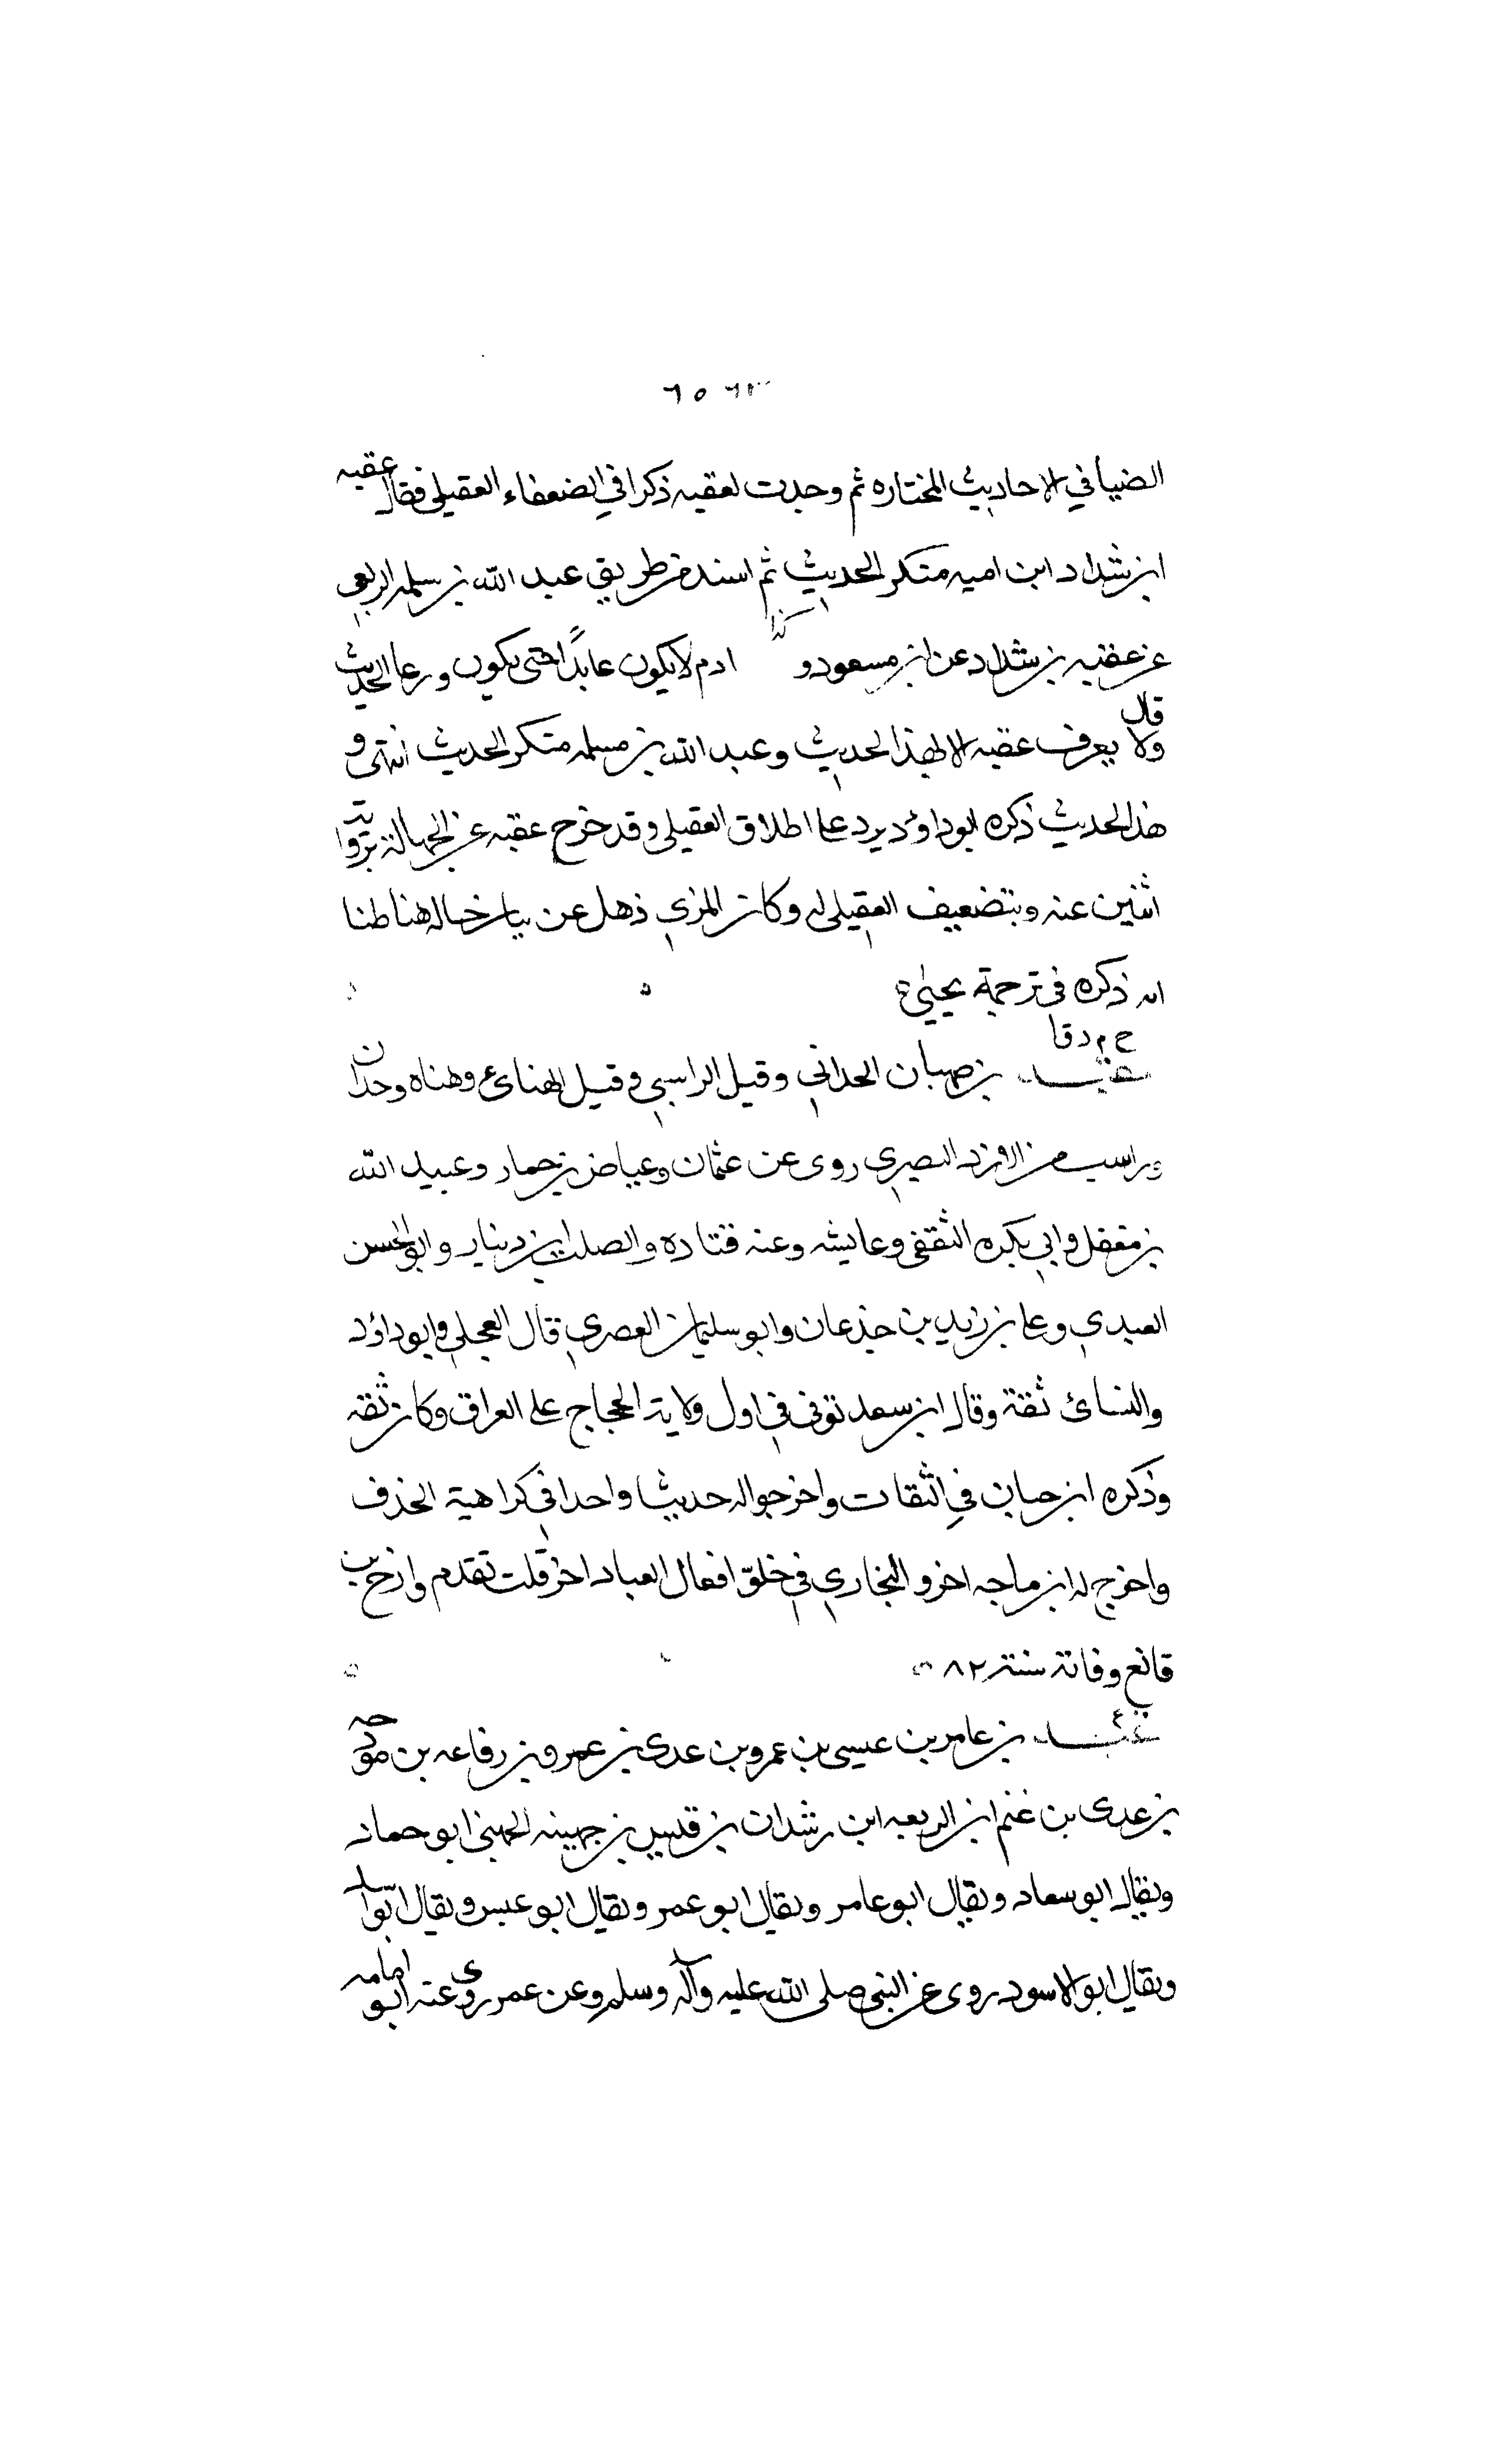 ٦٥٦
الضيا في الاحاديث المختاره ثم وجدت لعقبه ذكرا في الضعفاء العقيلي فقال عقبه
ابن شداد ابن اميه منكر الحديث ثم اسند من طريق عبد الله بن سلمه الربعي
عن عقبه بن شداد عن ابن مسعود و كذا ادم لا يكون عابدًا حتى يكون ورعا الحديث
قال ولا يعرف عقبه الا بهذا الحديث وعبد الله بن مسلمه منكر الحديث انتهى و
هذا الحديث ذكره ابو داود يرد على اطلاق العقيلي وقد خرج عقبه عن الجهالة برواية
اثنين عنه وبتضعيف العقيلي له وكان المزي ذهل عن بيان حاله هنا ظنا
انه ذكره في ترجمة يحيى
خ م د ق
عقبه بن صهبان الحداني وقيل الراسبي وقيل الهنائي وهناه وحدان
وراسب من الازد البصري روى عن عثمان وعياض بن حمار وعبيد الله
بن مغفل وابي بكره الثقفي وعايشه وعنه قتاده والصلت بن دينار وابو الحسن
العبدي وعلى بن زيد بن جذعان وابو سليمان العصري قال العجلي وابو داؤد
والنسائ ثقة وقال ابن سعد توفى في اول ولاية الحجاج على العراق وكان ثقه
وذكره ابن حبان في الثقات واخرجوا له حديثا واحدا في كراهية الخذف
واخرج له ابن ماجه اخر والبخاري في خلق افعال العباد اخر قلت تقدم وارخ بن
قانع وفاته سنة ٨٢
ع
عقبه بن عامر بن عيسى بن عمرو بن عدى بن عمرو بن رفاعه بن مودحه
بن عدى بن غنم ابن الربعه ابن رشدان بن قيس بن جهينه الجهني ابو حماد
ويقال ابو سعاد ويقال ابو عامر ويقال ابو عمر ويقال ابو عبس ويقال ابو اسد
ويقال ابو الاسود روى عن النبي صلى الله عليه وآله وسلم وعن عمر روى عنه ابو امامه